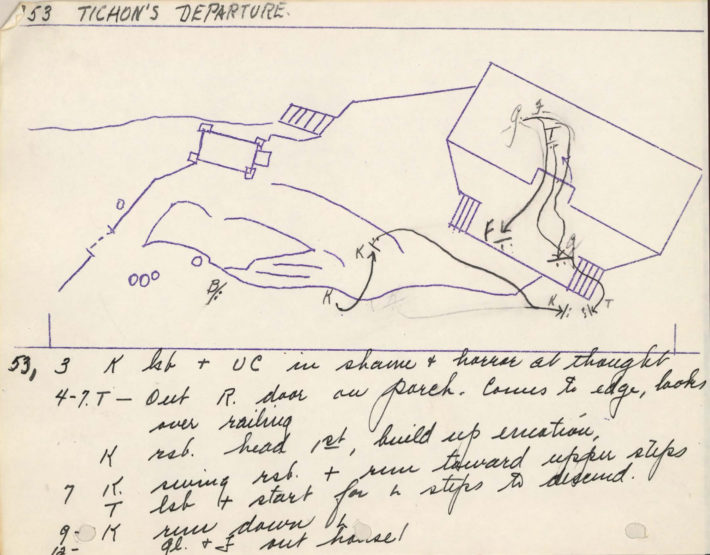 153 TICHON'S DEPARTURE.
g. F
T
F
g
K
K
K
T
B/:
53, 3 K lsb + UC in shame + horror at thought
4-7. T — Out R. door on porch. Comes to edge, looks
over railing
K rsb. head 1st, build up emotion,
7 K. swing rsb. + run toward upper steps
T lsb + start for L steps to descend.
9- K run down L
12- gl. + F out house!